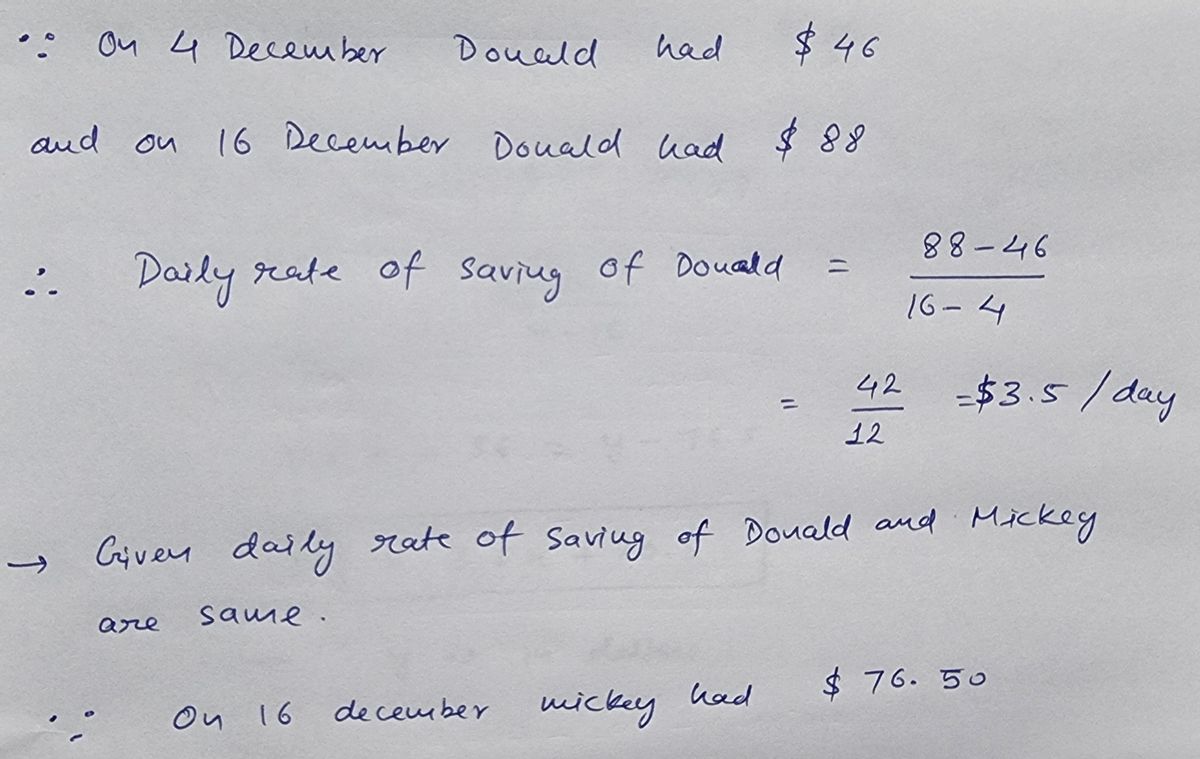 ∵ On 4 December Donald had $ 46
and on 16 December Donald had $ 88
∴ Daily rate of saving of Donald = 88-46 / 16-4
= 42 / 12 =$3.5 / day
→ Given daily rate of saving of Donald and Mickey
are same.
∵ On 16 december mickey had $ 76.50